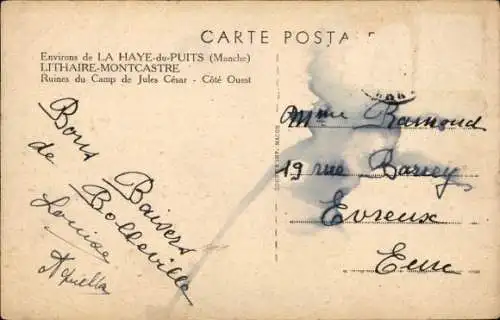 CARTE POSTALE
Environs de LA HAYE-du-PUITS (Manche)
LITHAIRE-MONTCASTRE
Ruines du Camp de Jules César - Côté Ouest
Bons Baisers
de Bolleville
Louise
Mme Ramond
19 rue
Evreux
Eure